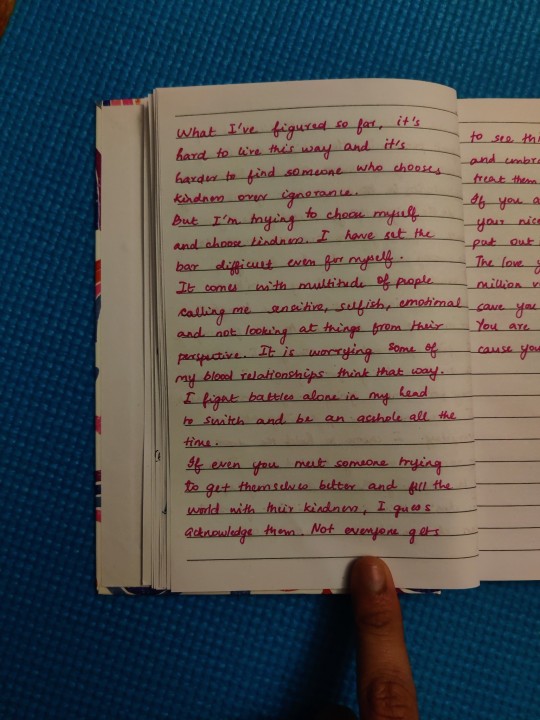 What I've figured so far, it's
hard to live this way and it's
harder to find someone who chooses
kindness over ignorance.
But I'm trying to choose myself
and choose kindness. I have set the
bar difficult even for myself.
It comes with multitude of people
calling me sensitive, selfish, emotional
and not looking at things from their
perspective. It is worrying some of
my blood relationships think that way.
I fight battles alone in my head
to switch and be an asshole all the
time.
If even you meet someone trying
to get themselves better and fill the
world with their kindness, I guess
acknowledge them. Not everyone gets
to see thi
and embra
treat them
If you a
your nice
put out
The love y
million v
save you
You are
cause you